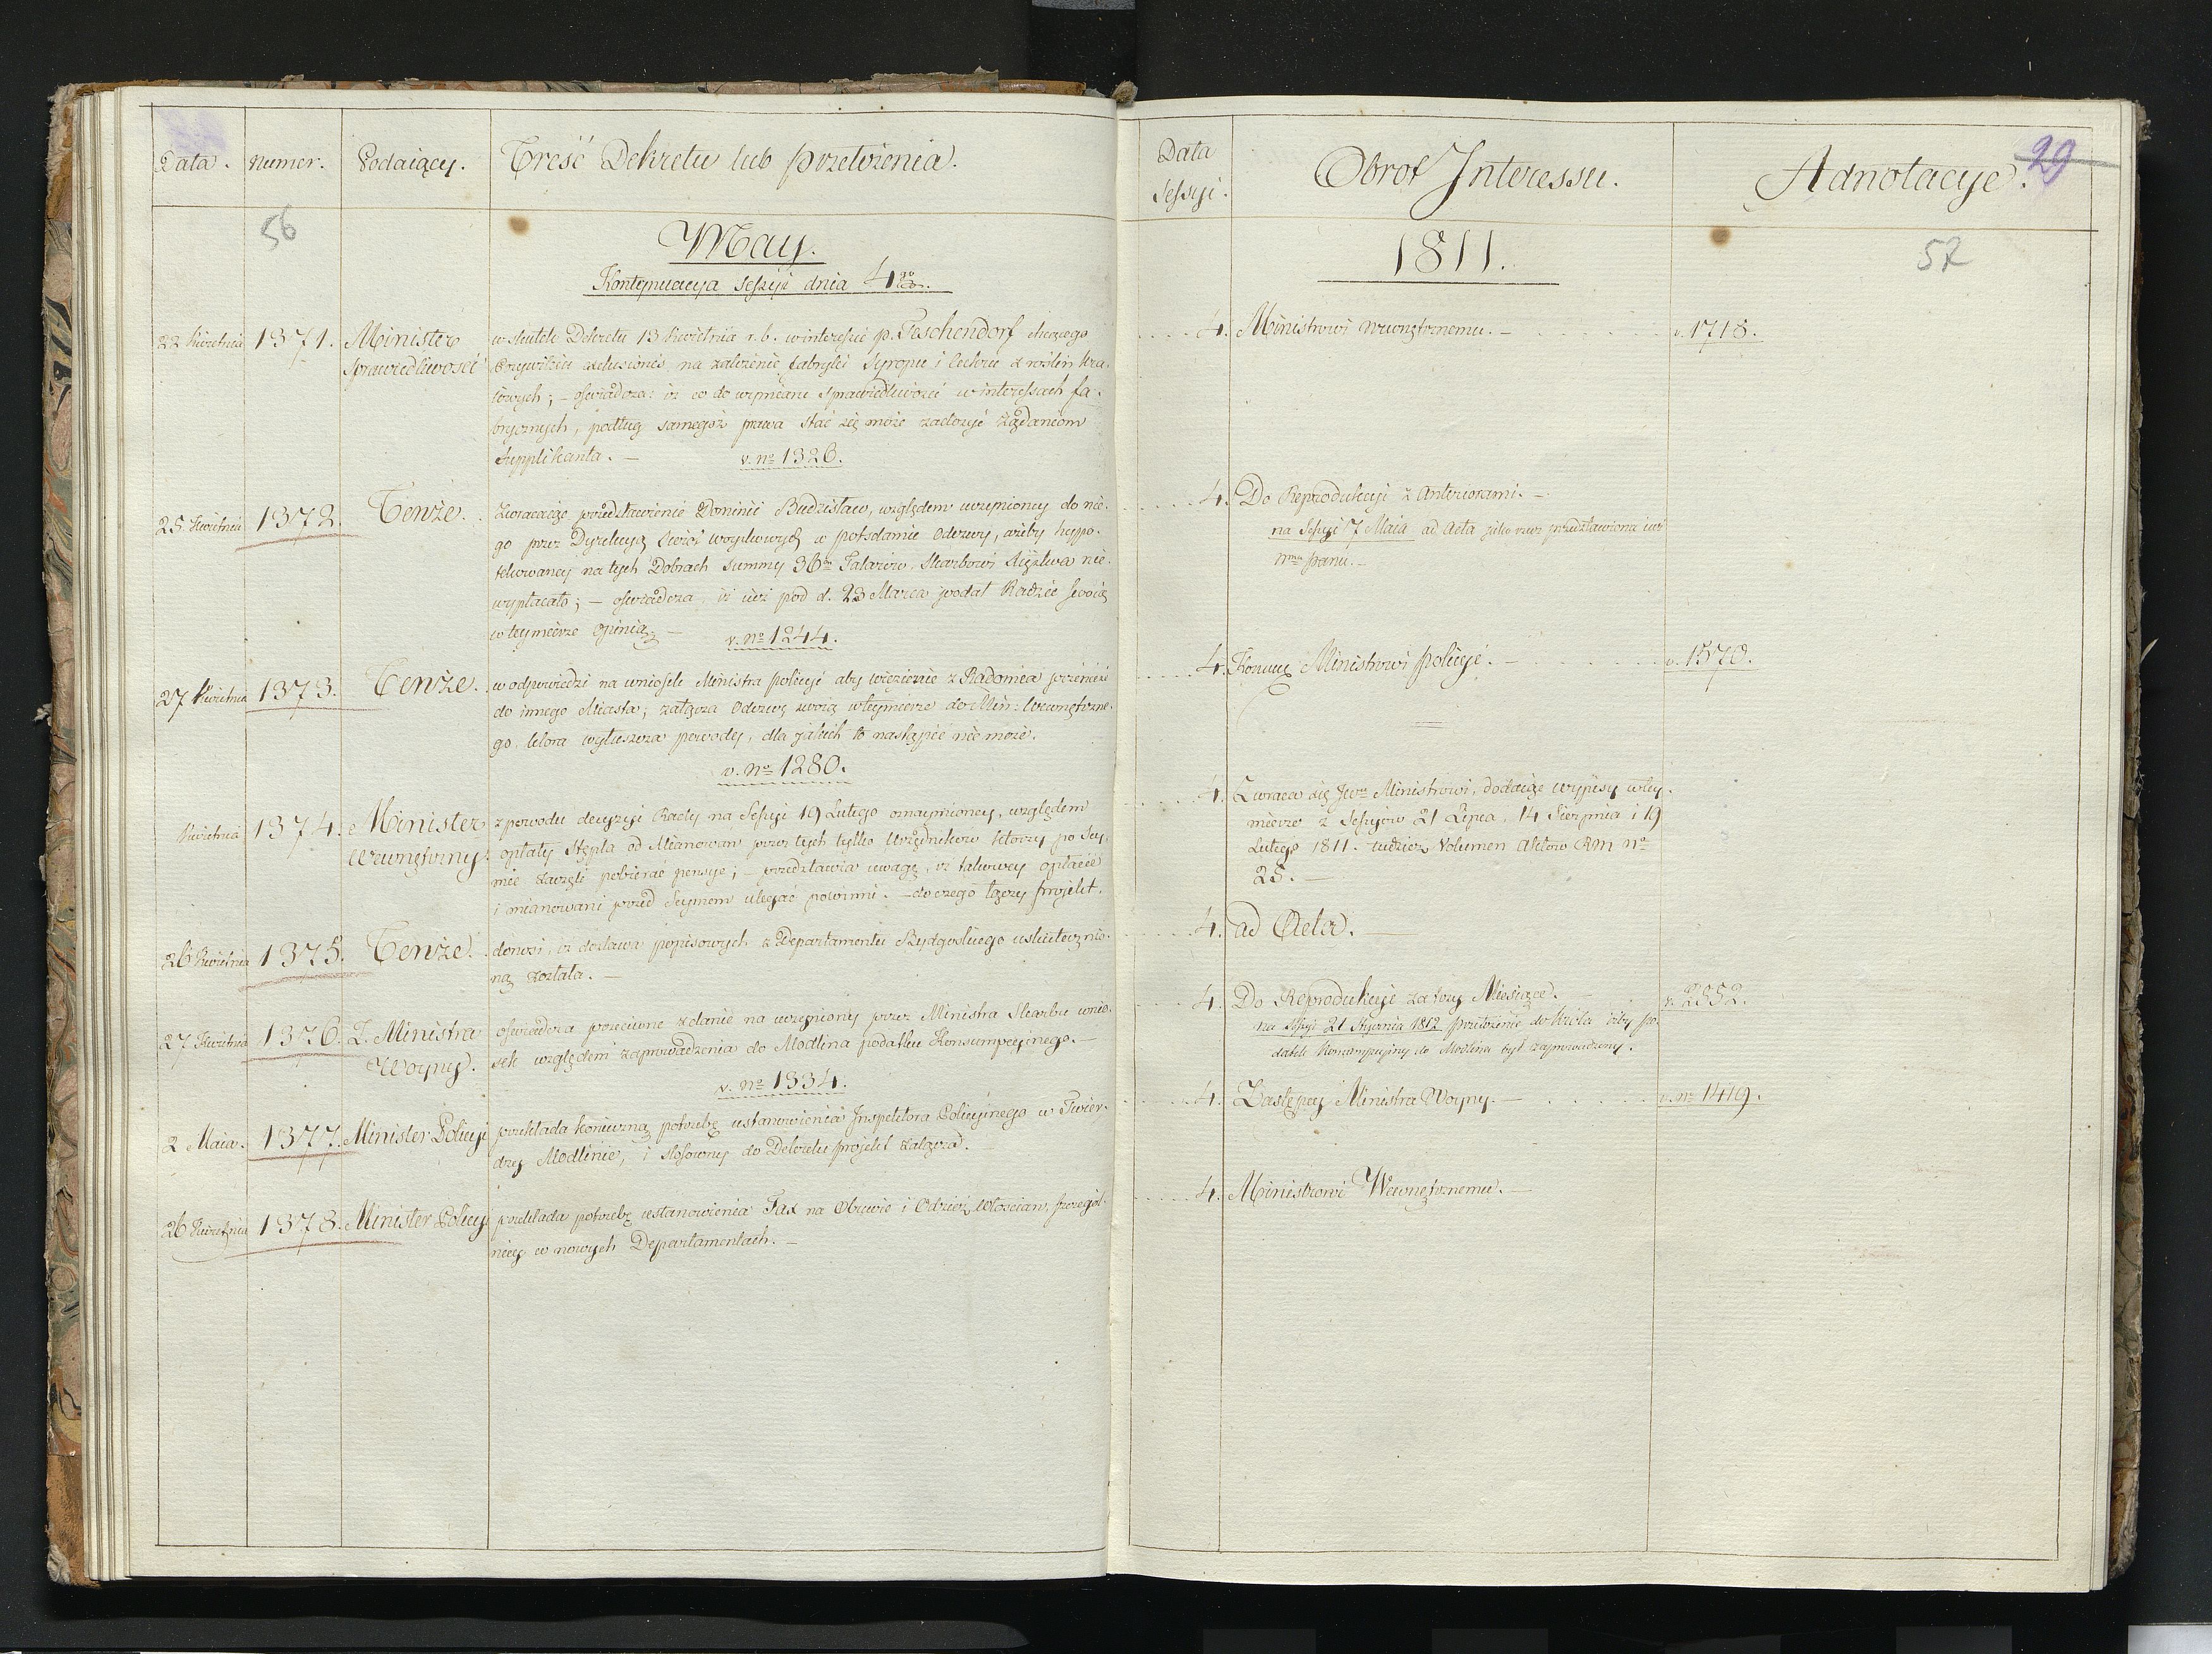 Data. Numer. Podaiący. Treść Dekretu lub przełożenia.
56
May.
Kontynuacya Sessyi dnia 4go
22 Kwietnia 1371. Minister Sprawiedliwości
w skutek Dekretu 13 Kwietnia r.b. w interessie p. Teschendorf chcącego
Przywileiu exclusivnes na założenie fabryki Syropu i Cukru z roślin kra-
iowych; – oświadcza: iż co do wymiaru Sprawiedliwości w interessach fa-
brycznych, podług samegoż prawa stać się może zadosyć żądaniom
Supplikanta. – v. no 1326.
25 Kwietnia 1372. Tenże.
Zwracaiąc przedstawienie Dominii Budzisław, względem uczynioney do nie-
go przez Dyrekcyą Sierót woyskowych w Potsdamie Odezwy, ażeby hyppo-
tekowaney na tych Dobrach Summy 36m Talarów, Skarbowi Xięztwa nie-
wypłacało; – oświadcza, iż iuż pod d. 23 Marca podał Radzie swoią
w tey mierze opinią – v. no 1244.
27 Kwietnia 1373. Tenże.
w odpowiedzi na wniosek Ministra policyi aby więzienie z Radomia przenieść
do innego Miasta; załącza Odezwę swoią w tey mierze do Min: Wewnętrzne-
go, która wyłuszcza powody, dla jakich to nastąpić nie może.
v. No 1280.
Kwietnia 1374. Minister Wewnętrzny
z powodu decyzyi Rady na Sessyi 19 Lutego oznaymioney, względem
opłaty Stępla od Mianowań przez tych tylko Urzędników którzy po Sey-
mie zaczęli pobierać pensye; – przedstawia uwagę, iż takowey opłacie
i mianowani przed Seymem ulegać powinni. – do czego łączy projekt.
26 Kwietnia 1375. Tenże.
donosi, iż dostawa popisowych z Departamentu Bydgoskiego uskutecznio-
ną została. –
27 Kwietnia 1376. Z. Ministra Woyny.
oświadcza przeciwne zdanie na uczyniony przez Ministra Skarbu wnio-
sek względem zaprowadzenia do Modlina podatku Konsumpcyinego. –
v. no 1334.
2 Maia. 1377. Minister Policyi
przekłada konieczną potrzebę ustanowienia Inspektora Policyinego w Twier-
dzy Modlinie, i stosowny do Dekretu projekt załącza.
26 Kwietnia 1378. Minister Policyi
przekłada potrzebę ustanowienia Tax na Obuwie i Odzież Włościan, szczegól-
niey w nowych Departamentach. –
Data Sessyi. Obrot Interessu. Adnotacye.
29
1811.
57
4. Ministrowi Wewnętrznemu. – v. 1718.
4. Do Reprodukcyi z Anteriorami. –
na Sessyi 7 Maia ad Acta jako rzecz przedstawiona iuż
Nmu Panu. –
4. Kommu: Ministrowi policyi. – v. 1570.
4. Zwraca się Jwu Ministrowi, dodaiąc wypisy w tey-
mierze z Sessyiów 21 Lipca, 14 Sierpnia i 19
Lutego 1811. tudzież Volumen Aktów RM no
25. –
4. ad Acta. –
4. Do Reprodukcyi za trzy Miesiące. – v. 2352.
na Sessyi 21 Stycznia 1812 przełożenie do Króla ażby po-
datek Konsumpcyiny do Modlina był zaprowadzony.
4. Zastępcy Ministra Woyny. – v. no 1419.
4. Ministrowi Wewnętrznemu. –